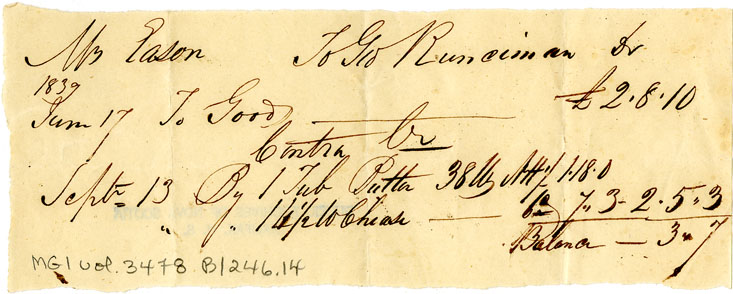 Mr Eason To Geo Runciman Dr
1839
June 17 To Goods £2.8.10
Contra Cr
Septr 13 By 1 Tub Butter 38 lb 1.18.0
" " 14½ lb Chease 6d 7.3 - 2.5.3
Balance - 3.7
MG1 vol. 3478 B/246.14